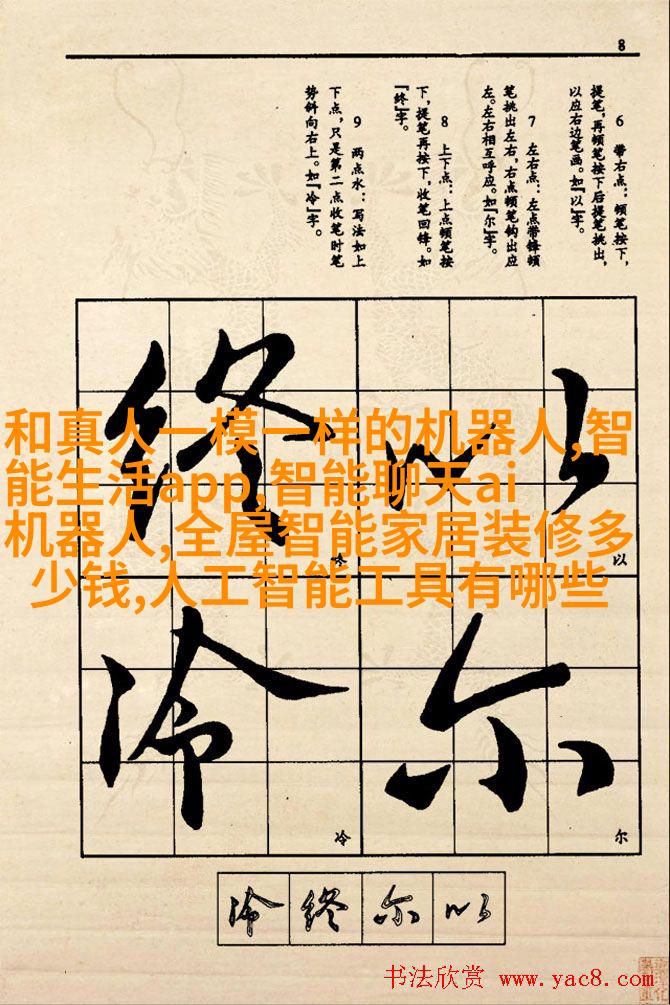 8
6 带右点：顿笔按下，
提笔，再顿笔按下后提笔挑出，
以应右边笔画。如『以』字。
7 左右点：左点带锋顿
笔挑出左右，右点顿笔钩出应
左。左右相互呼应。如『尔』字。
8 上下点：上点顿笔按
下，提笔再按下，收笔回锋。如
『终』字。
9 两点水：写法如上
下点，只是第二点收笔时笔
势斜向右上。如『冷』字。
以
终
以
尔
冷
尔
冷
和真人一模一样的机器人,智
能生活app,智能聊天ai
机器人,全屋智能家居装修多
少钱,人工智能工具有哪些
冷 终 尔 以
书法欣赏 www.yac8.com